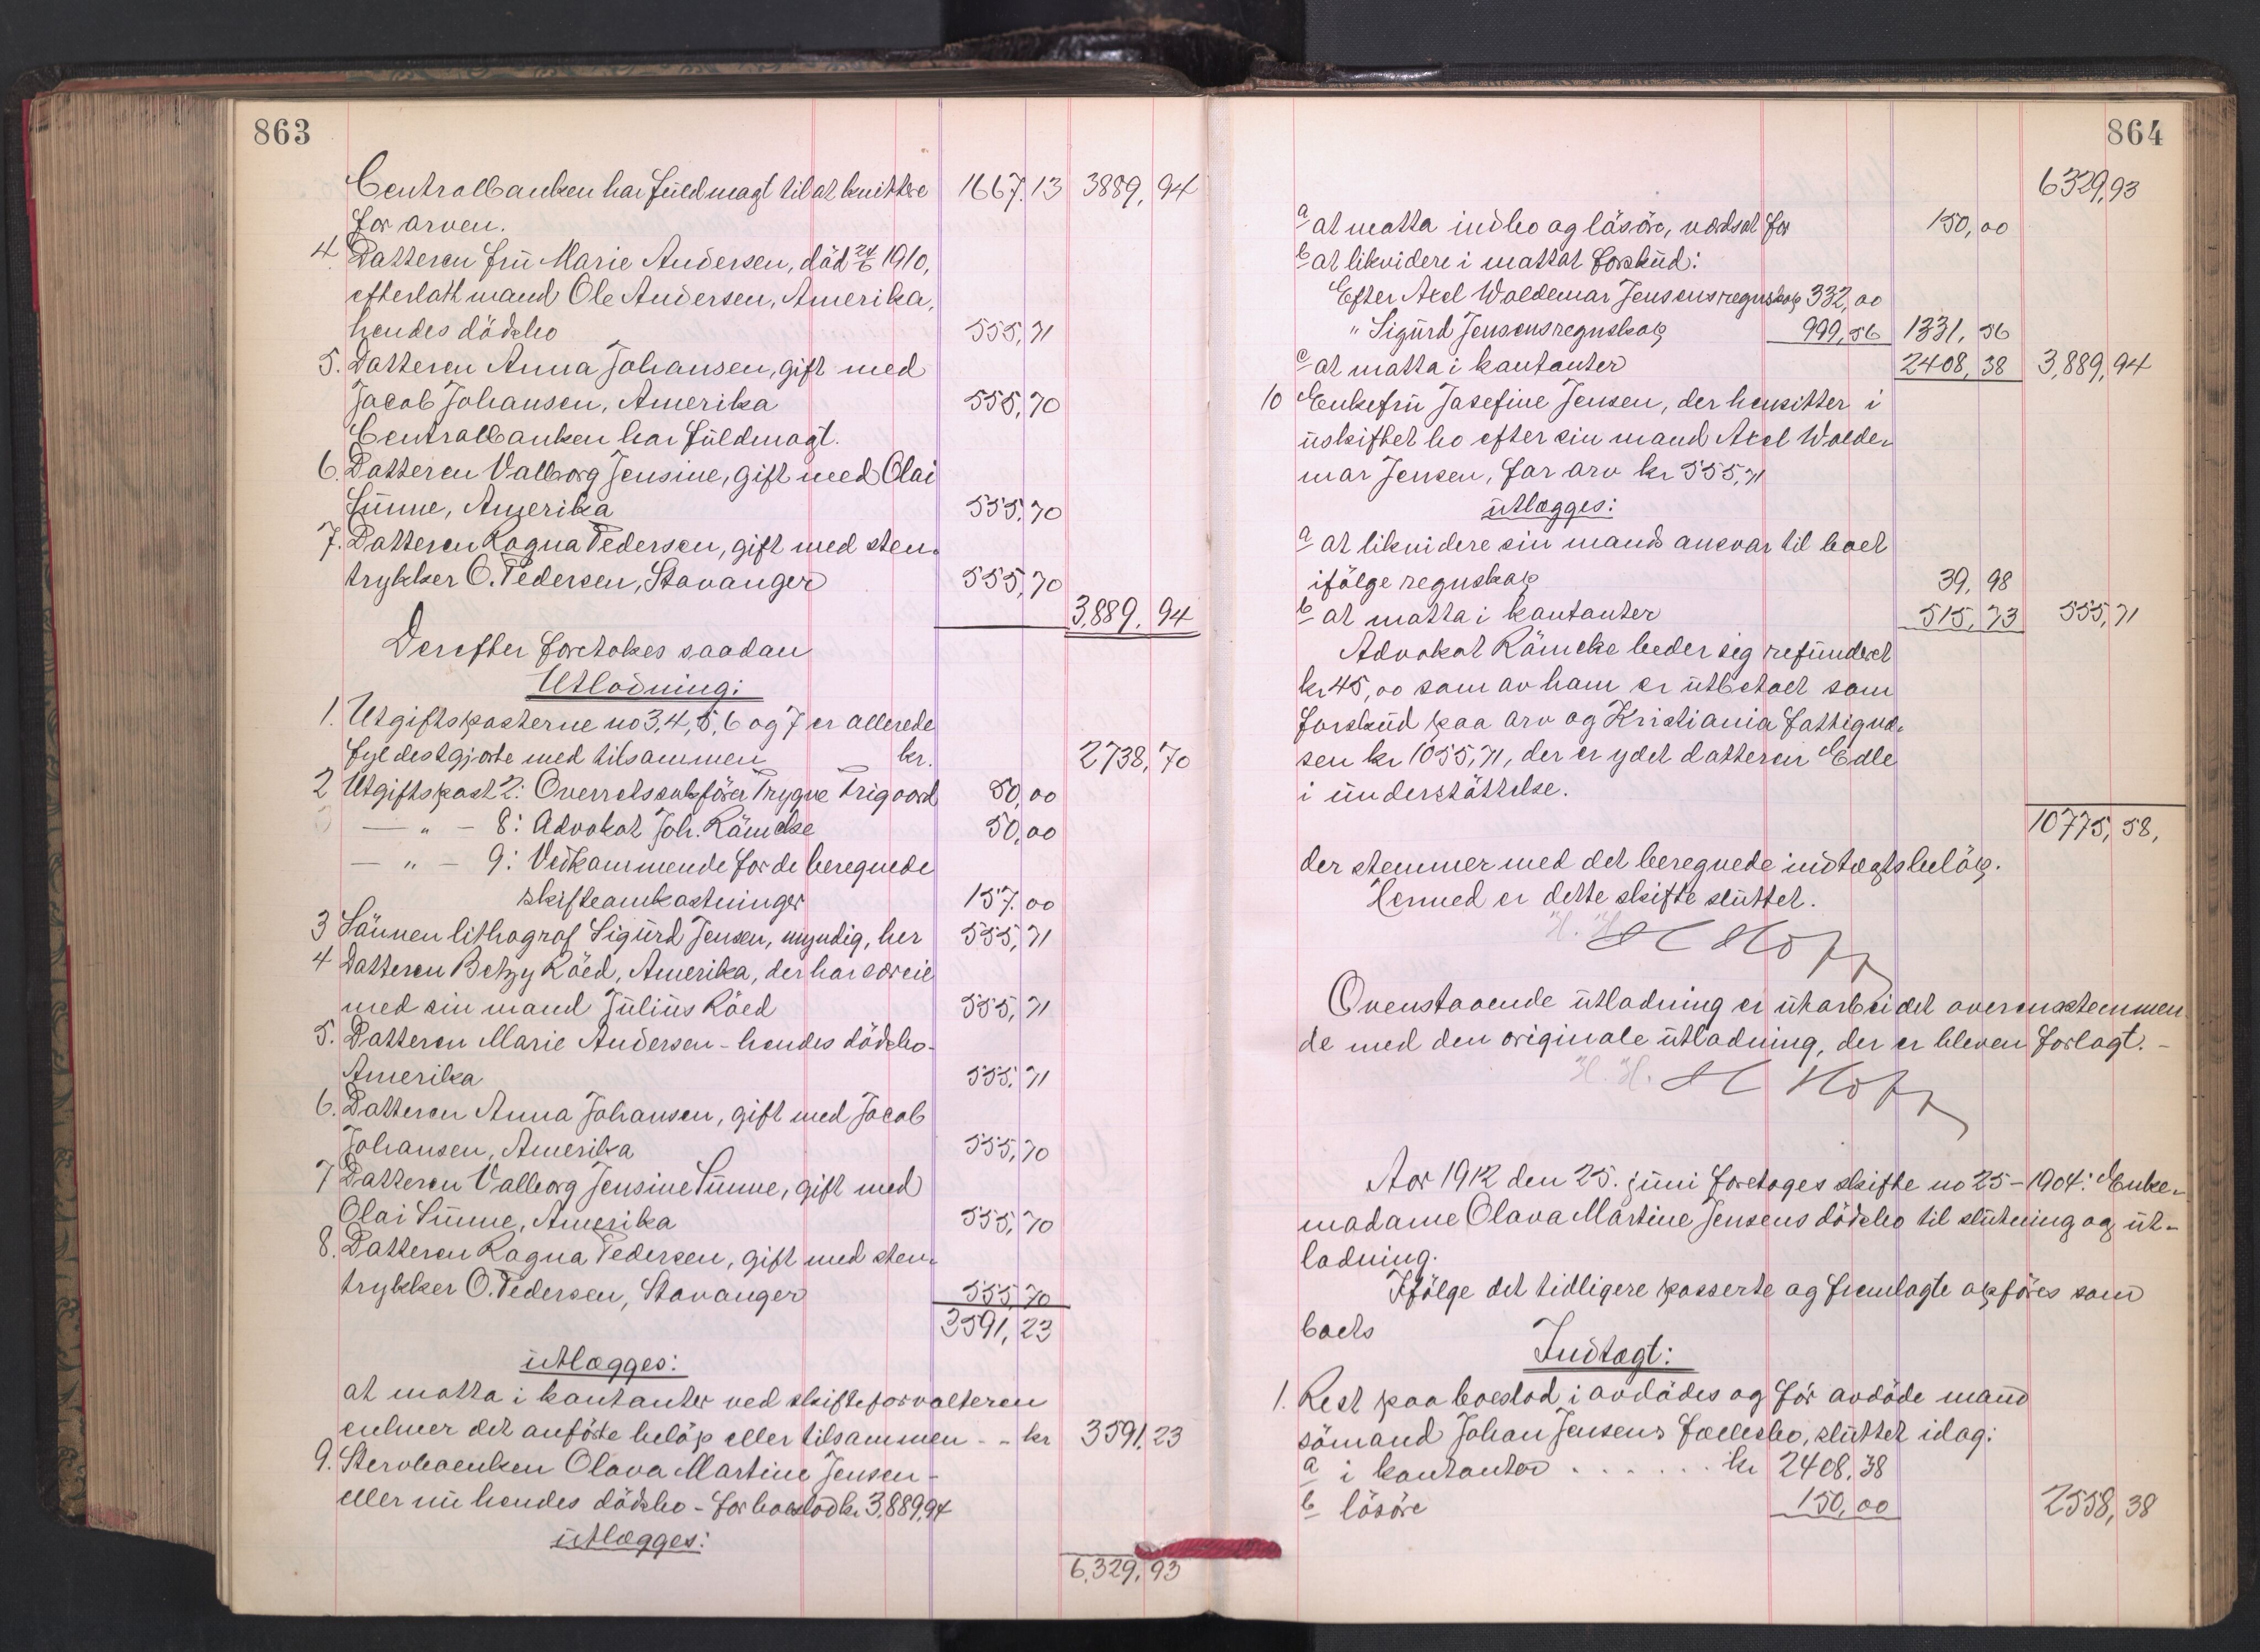 863
Centralbanken har fuldmagt til at kvittere 1667.13 3889,94
for arven.
4. Datteren fru Marie Andersen, död 24/6 1910,
efterlatt mand Ole Andersen, Amerika,
hendes dödsbo 555,71
5. Datteren Anna Johansen, gift med
Jacob Johansen, Amerika 555,70
Centralbanken har fuldmagt.
6. Datteren Valborg Jensine, gift med Olai
Sunne, Amerika 555,70
7. Datteren Ragna Pedersen, gift med sten-
trykker O. Pedersen, Stavanger 555,70
3,889,94
Derefter foretokes saadan
Utlodning:
1. Utgiftsposterne no 3,4,5,6 og 7 er allerede
fyldestgjorte med tilsammen kr. 2738,70
2 Utgiftspost 2: Overretssakförer Trygve Trigaard 50,00
— " — 8: Advokat Joh. Römcke 50,00
— " — 9: Vedkommende for de beregnede
skifteomkostninger 157.00
3 Sönnen lithograf Sigurd Jensen, myndig, her 555,71
4 Datteren Betzy Röed, Amerika, der har særeie
med sin mand Julius Röed 555,71
5. Datteren Marie Andersen - hendes dödsbo -
Amerika 555,71
6. Datteren Anna Johansen, gift med Jacob
Johansen, Amerika 555,70
7 Datteren Valborg Jensine Sunne, gift med
Olai Sunne, Amerika 555,70
8. Datteren Ragna Pedersen, gift med sten-
trykker O. Pedersen, Stavanger 555,70
3591,23
utlægges:
at motta i kontanter ved skifteforvalteren
enhver det anförte belöp eller tilsammen - - kr 3591,23
9. Stervboenken Olava Martine Jensen -
eller nu hendes dödsbo - for boeslod kr 3,889,94
utlægges:
6,329,93
864
6329,93
a at motta indbo og lösöre, verdsat for 150,00
b at likvidere i mottat forskud:
Efter Axel Waldemar Jensens regnskap 332,00
" Sigurd Jensens regnskap 999,56 1331,56
c at motta i kontanter 2408,38 3,889,94
10 Enkefru Josefine Jensen, der hensitter i
uskiftet bo efter sin mand Axel Walde-
mar Jensen, for arv kr 555,71
utlægges:
a at likvidere sin mands ansvar til boet
ifölge regnskap 39,98
b at motta i kontanter 515,73 555,71
Advokat Römcke beder sig refunderet
kr 45,00 som av ham er utbetalt som
forskud paa arv og Kristiania fattigvæ-
sen kr 1055,71, der er ydet datteren Edle
i understöttelse.
10775,58,
der stemmer med det beregnede indtægtsbelöp.
Hermed er dette skifte sluttet.
Ovenstaaende utlodning er utarbeidet overensstemmen
de med den originale utlodning, der er bleven forlagt. -
Aar 1912 den 25. juni foretoges skifte no 25 - 1904: Enke-
madame Olava Martine Jensens dödsbo til slutning og ut-
lodning.
Ifölge det tidligere passerte og fremlagte opföres som
boets
Indtægt:
1. Rest paa boeslod i avdödes og för avdöde mand
sömand Johan Jensens fællesbo, sluttet idag:
a i kontanter . . . . . . . kr 2408,38
b lösöre 150,00 2558,38